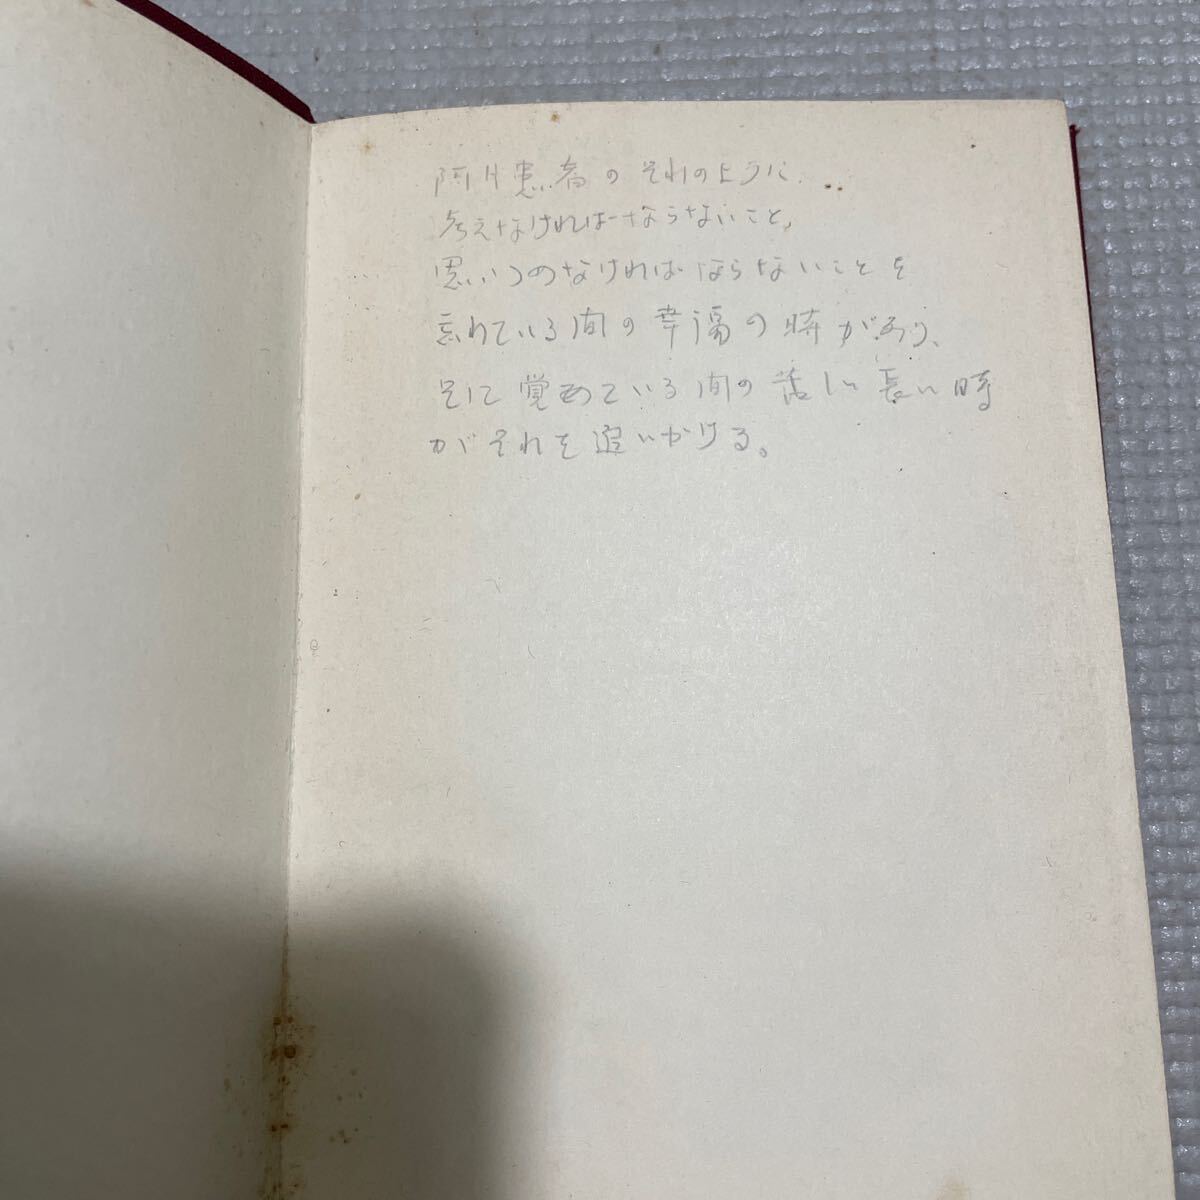 阿片患者のそれのように、
考えなければならないこと、
思いつめなければならないことを
忘れている間の幸福の時があり、
次に覚めている間の苦しい長い時
がそれを追いかける。